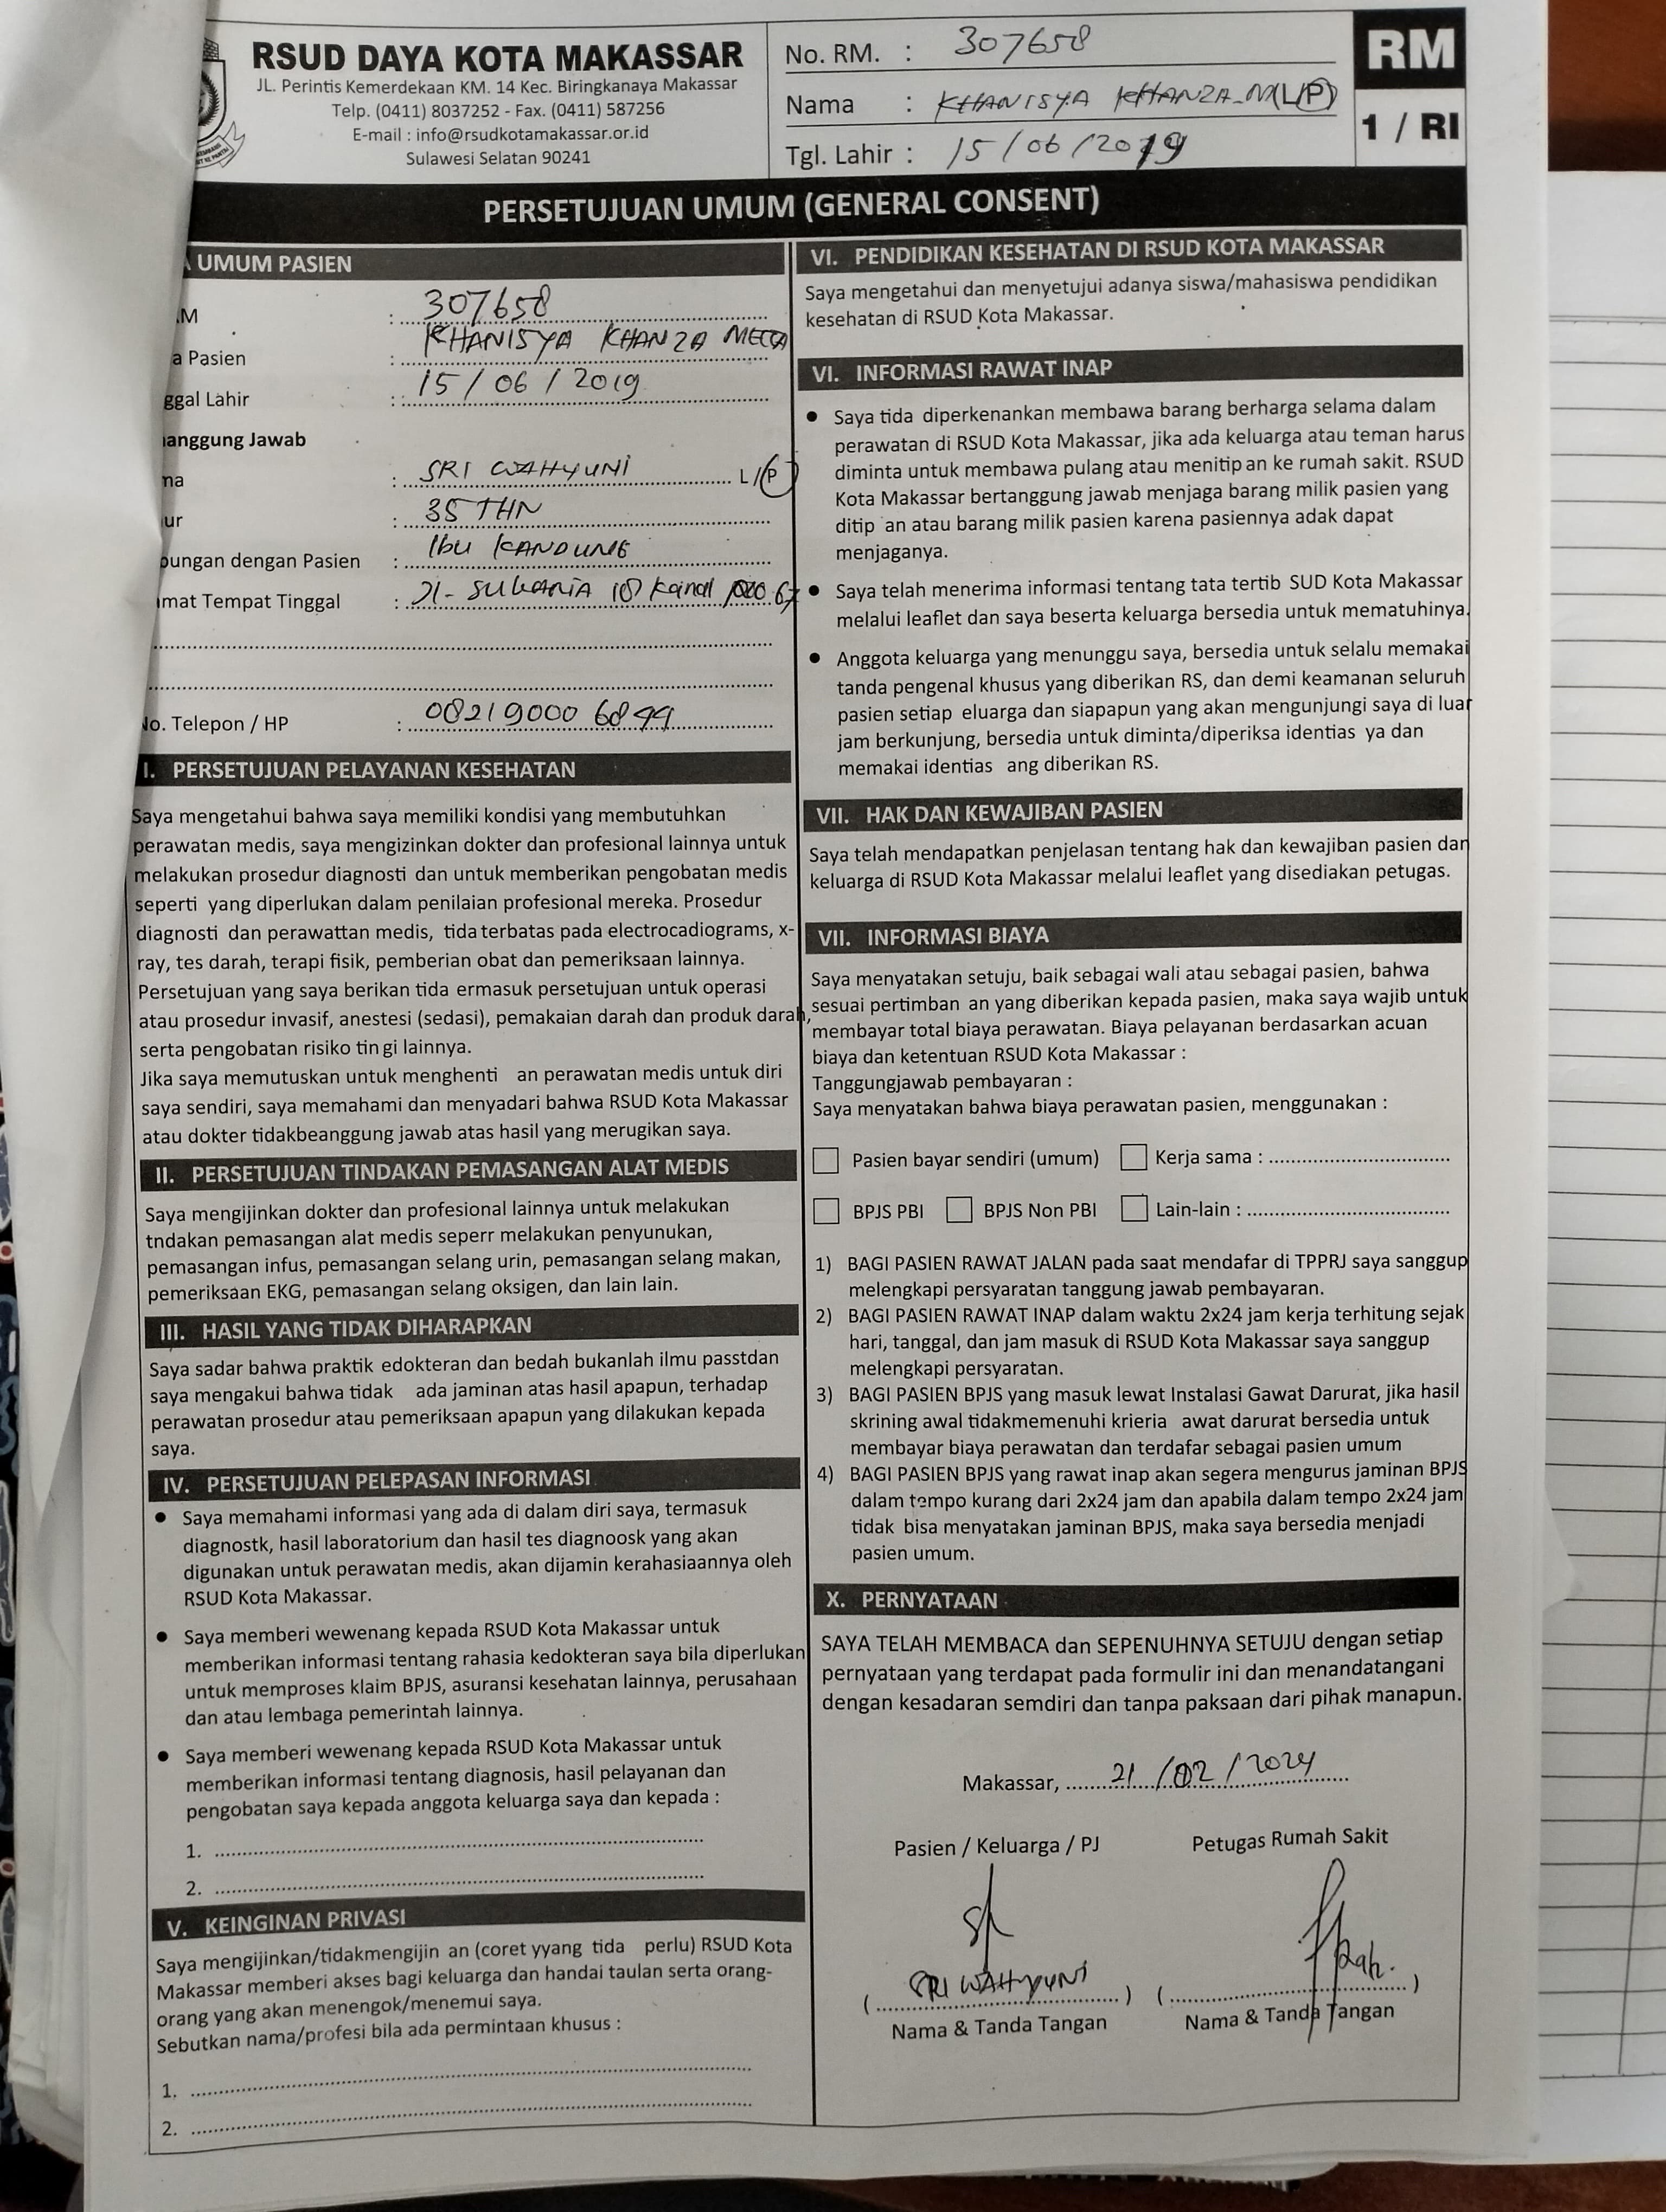 RSUD DAYA KOTA MAKASSAR
JL. Perintis Kemerdekaan KM. 14 Kec. Biringkanaya Makassar
Telp. (0411) 8037252 - Fax. (0411) 587256
E-mail : info@rsudkotamakassar.or.id
Sulawesi Selatan 90241
No. RM. : 307658
Nama : KHANISYA KHANZA.M (L/P)
Tgl. Lahir : 15/06/2019
RM
1 / RI
PERSETUJUAN UMUM (GENERAL CONSENT)
UMUM PASIEN
M : 307658
a Pasien : KHANISYA KHANZA MECCA
ggal Lahir : 15/06/2019
anggung Jawab
na : SRI WAHYUNI L/P
ur : 35 THN
bungan dengan Pasien : Ibu KANDUNG
mat Tempat Tinggal : Jl-
No. Telepon / HP : 082190006899
I. PERSETUJUAN PELAYANAN KESEHATAN
Saya mengetahui bahwa saya memiliki kondisi yang membutuhkan
perawatan medis, saya mengizinkan dokter dan profesional lainnya untuk
melakukan prosedur diagnosti dan untuk memberikan pengobatan medis
seperti yang diperlukan dalam penilaian profesional mereka. Prosedur
diagnosti dan perawattan medis, tida terbatas pada electrocadiograms, x-
ray, tes darah, terapi fisik, pemberian obat dan pemeriksaan lainnya.
Persetujuan yang saya berikan tida ermasuk persetujuan untuk operasi
atau prosedur invasif, anestesi (sedasi), pemakaian darah dan produk darah,
serta pengobatan risiko tin gi lainnya.
Jika saya memutuskan untuk menghenti an perawatan medis untuk diri
saya sendiri, saya memahami dan menyadari bahwa RSUD Kota Makassar
atau dokter tidakbeanggung jawab atas hasil yang merugikan saya.
II. PERSETUJUAN TINDAKAN PEMASANGAN ALAT MEDIS
Saya mengijinkan dokter dan profesional lainnya untuk melakukan
tndakan pemasangan alat medis seperr melakukan penyunukan,
pemasangan infus, pemasangan selang urin, pemasangan selang makan,
pemeriksaan EKG, pemasangan selang oksigen, dan lain lain.
III. HASIL YANG TIDAK DIHARAPKAN
Saya sadar bahwa praktik edokteran dan bedah bukanlah ilmu passtdan
saya mengakui bahwa tidak ada jaminan atas hasil apapun, terhadap
perawatan prosedur atau pemeriksaan apapun yang dilakukan kepada
saya.
IV. PERSETUJUAN PELEPASAN INFORMASI
• Saya memahami informasi yang ada di dalam diri saya, termasuk
diagnostk, hasil laboratorium dan hasil tes diagnoosk yang akan
digunakan untuk perawatan medis, akan dijamin kerahasiaannya oleh
RSUD Kota Makassar.
• Saya memberi wewenang kepada RSUD Kota Makassar untuk
memberikan informasi tentang rahasia kedokteran saya bila diperlukan
untuk memproses klaim BPJS, asuransi kesehatan lainnya, perusahaan
dan atau lembaga pemerintah lainnya.
• Saya memberi wewenang kepada RSUD Kota Makassar untuk
memberikan informasi tentang diagnosis, hasil pelayanan dan
pengobatan saya kepada anggota keluarga saya dan kepada :
1.
2.
V. KEINGINAN PRIVASI
Saya mengijinkan/tidakmengijin an (coret yyang tida perlu) RSUD Kota
Makassar memberi akses bagi keluarga dan handai taulan serta orang-
orang yang akan menengok/menemui saya.
Sebutkan nama/profesi bila ada permintaan khusus :
1.
2.
VI. PENDIDIKAN KESEHATAN DI RSUD KOTA MAKASSAR
Saya mengetahui dan menyetujui adanya siswa/mahasiswa pendidikan
kesehatan di RSUD Kota Makassar.
VI. INFORMASI RAWAT INAP
• Saya tida diperkenankan membawa barang berharga selama dalam
perawatan di RSUD Kota Makassar, jika ada keluarga atau teman harus
diminta untuk membawa pulang atau menitip an ke rumah sakit. RSUD
Kota Makassar bertanggung jawab menjaga barang milik pasien yang
ditip an atau barang milik pasien karena pasiennya adak dapat
menjaganya.
• Saya telah menerima informasi tentang tata tertib SUD Kota Makassar
melalui leaflet dan saya beserta keluarga bersedia untuk mematuhinya.
• Anggota keluarga yang menunggu saya, bersedia untuk selalu memakai
tanda pengenal khusus yang diberikan RS, dan demi keamanan seluruh
pasien setiap eluarga dan siapapun yang akan mengunjungi saya di luar
jam berkunjung, bersedia untuk diminta/diperiksa identias ya dan
memakai identias ang diberikan RS.
VII. HAK DAN KEWAJIBAN PASIEN
Saya telah mendapatkan penjelasan tentang hak dan kewajiban pasien dan
keluarga di RSUD Kota Makassar melalui leaflet yang disediakan petugas.
VII. INFORMASI BIAYA
Saya menyatakan setuju, baik sebagai wali atau sebagai pasien, bahwa
sesuai pertimban an yang diberikan kepada pasien, maka saya wajib untuk
membayar total biaya perawatan. Biaya pelayanan berdasarkan acuan
biaya dan ketentuan RSUD Kota Makassar :
Tanggungjawab pembayaran :
Saya menyatakan bahwa biaya perawatan pasien, menggunakan :
Pasien bayar sendiri (umum) Kerja sama :
BPJS PBI BPJS Non PBI Lain-lain :
1) BAGI PASIEN RAWAT JALAN pada saat mendafar di TPPRJ saya sanggup
melengkapi persyaratan tanggung jawab pembayaran.
2) BAGI PASIEN RAWAT INAP dalam waktu 2x24 jam kerja terhitung sejak
hari, tanggal, dan jam masuk di RSUD Kota Makassar saya sanggup
melengkapi persyaratan.
3) BAGI PASIEN BPJS yang masuk lewat Instalasi Gawat Darurat, jika hasil
skrining awal tidakmemenuhi krieria awat darurat bersedia untuk
membayar biaya perawatan dan terdafar sebagai pasien umum
4) BAGI PASIEN BPJS yang rawat inap akan segera mengurus jaminan BPJS
dalam tempo kurang dari 2x24 jam dan apabila dalam tempo 2x24 jam
tidak bisa menyatakan jaminan BPJS, maka saya bersedia menjadi
pasien umum.
X. PERNYATAAN
SAYA TELAH MEMBACA dan SEPENUHNYA SETUJU dengan setiap
pernyataan yang terdapat pada formulir ini dan menandatangani
dengan kesadaran semdiri dan tanpa paksaan dari pihak manapun.
Makassar, 21/02/2024
Pasien / Keluarga / PJ Petugas Rumah Sakit
( SRI WAHYUNI ) ( )
Nama & Tanda Tangan Nama & Tanda Tangan